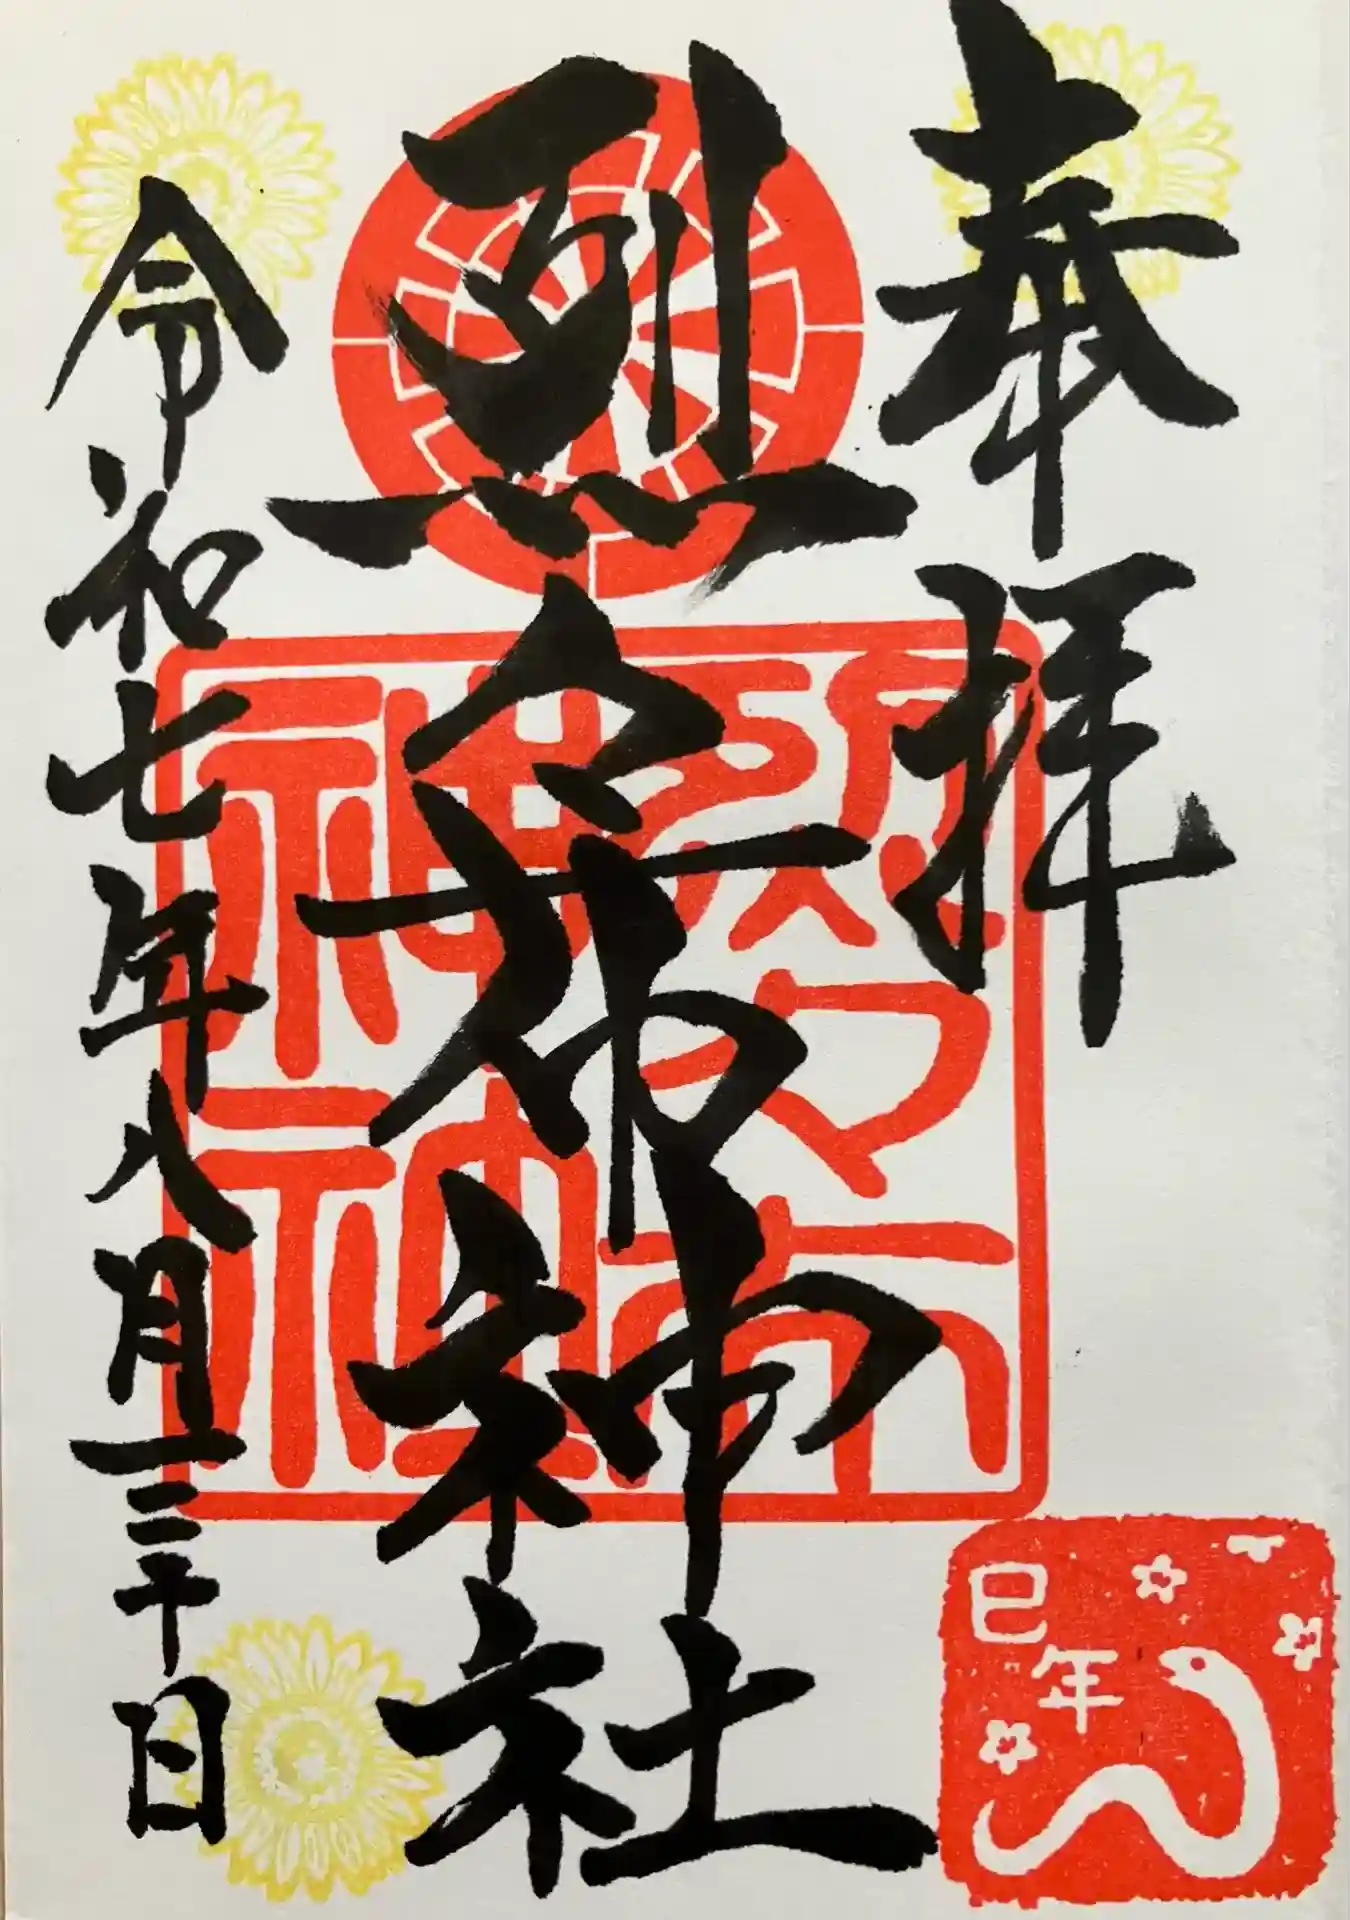 奉拝
烈々布神社
令和七年八月三十日
烈々布
神社
巳年